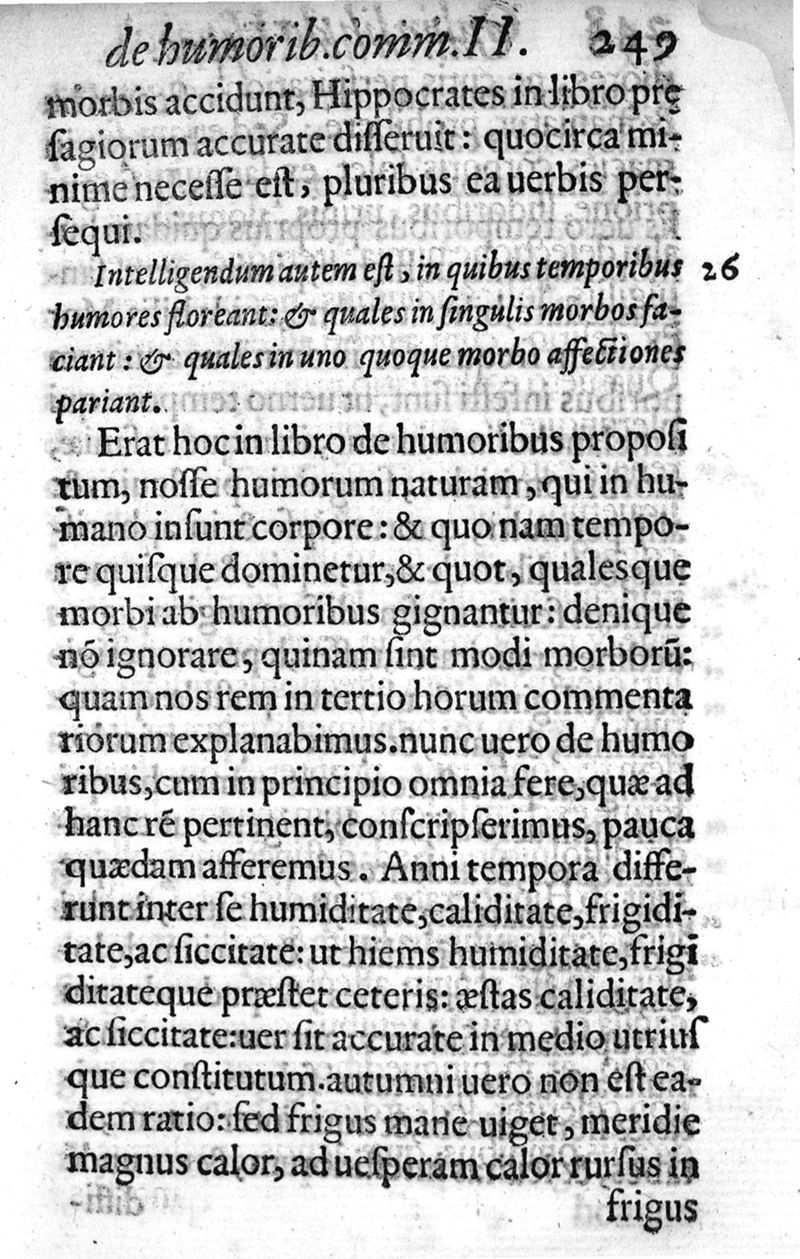 de humorib. comm. II. 249
morbis accidunt, Hippocrates in libro prę
ſagiorum accurate diſſeruit: quocirca mi-
nime neceſſe eſt, pluribus ea uerbis per-
ſequi.
Intelligendum autem eſt, in quibus temporibus 26
humores floreant: & quales in ſingulis morbos fa-
ciant: & quales in uno quoque morbo affectiones
pariant.
Erat hoc in libro de humoribus propoſi
tum, noſſe humorum naturam, qui in hu-
mano inſunt corpore: & quo nam tempo-
re quiſque dominetur, & quot, qualesque
morbi ab humoribus gignantur: denique
nõ ignorare, quinam ſint modi morborũ:
quam nos rem in tertio horum commenta
riorum explanabimus. nunc uero de humo
ribus, cum in principio omnia fere, quæ ad
hanc rẽ pertinent, conſcripſerimus, pauca
quædam afferemus. Anni tempora diffe-
runt inter ſe humiditate, caliditate, frigidi-
tate, ac ſiccitate: ut hiems humiditate, frigi
ditateque præſtet ceteris: æſtas caliditate,
ac ſiccitate: uer ſit accurate in medio utriuſ
que conſtitutum. autumni uero non eſt ea-
dem ratio: ſed frigus mane uiget, meridie
magnus calor, ad ueſperam calor rurſus in
frigus